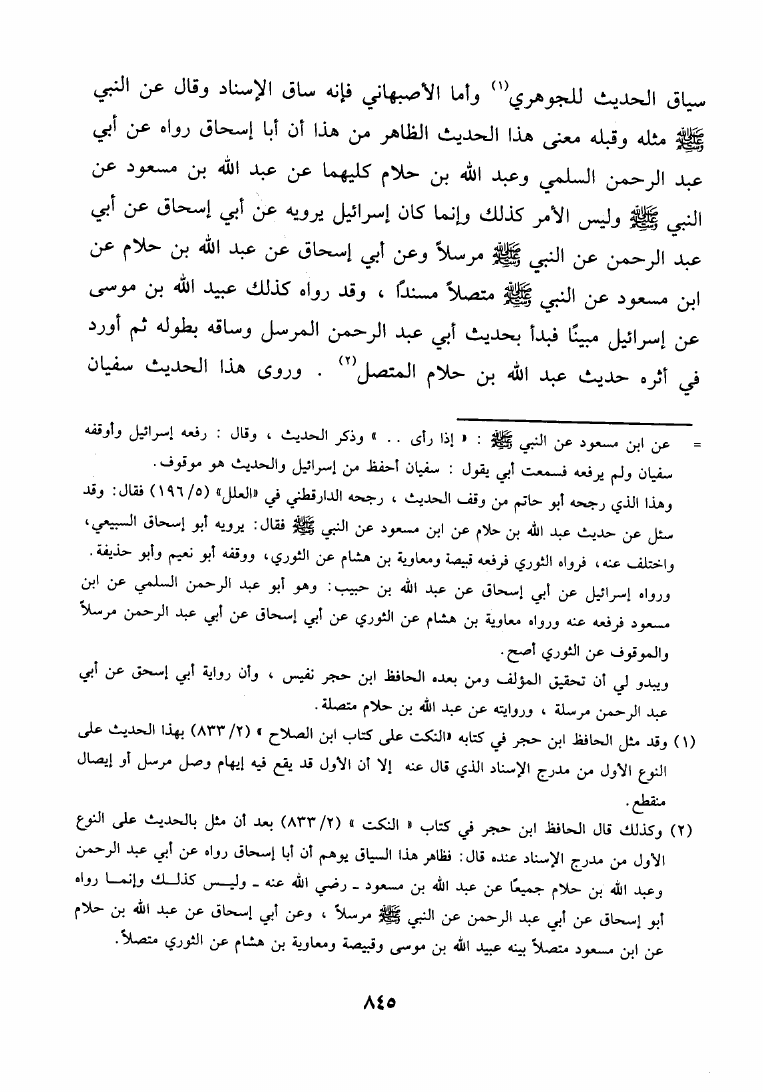 سياق الحديث للجوهري(١) وأما الأصبهاني فإنه ساق الإسناد وقال عن النبي
ﷺ مثله وقبله معنى هذا الحديث الظاهر من هذا أن أبا إسحاق رواه عن أبي
عبد الرحمن السلمي وعبد الله بن حلام كليهما عن عبد الله بن مسعود عن
النبي ﷺ وليس الأمر كذلك وإنما كان إسرائيل يرويه عن أبي إسحاق عن أبي
عبد الرحمن عن النبي ﷺ مرسلاً وعن أبي إسحاق عن عبد الله بن حلام عن
ابن مسعود عن النبي ﷺ متصلاً مسندًا ، وقد رواه كذلك عبيد الله بن موسى
عن إسرائيل مبينًا فبدأ بحديث أبي عبد الرحمن المرسل وساقه بطوله ثم أورد
في أثره حديث عبد الله بن حلام المتصل(٢) . وروى هذا الحديث سفيان
= عن ابن مسعود عن النبي ﷺ : « إذا رأى .. » وذكر الحديث ، وقال : رفعه إسرائيل وأوقفه
سفيان ولم يرفعه فسمعت أبي يقول : سفيان أحفظ من إسرائيل والحديث هو موقوف.
وهذا الذي رجحه أبو حاتم من وقف الحديث ، رجحه الدارقطني في «العلل» (١٩٦/٥) فقال: وقد
سئل عن حديث عبد الله بن حلام عن ابن مسعود عن النبي ﷺ فقال: يرويه أبو إسحاق السبيعي،
واختلف عنه، فرواه الثوري فرفعه قبيصة ومعاوية بن هشام عن الثوري، ووقفه أبو نعيم وأبو حذيفة.
ورواه إسرائيل عن أبي إسحاق عن عبد الله بن حبيب: وهو أبو عبد الرحمن السلمي عن ابن
مسعود فرفعه عنه ورواه معاوية بن هشام عن الثوري عن أبي إسحاق عن أبي عبد الرحمن مرسلاً
والموقوف عن الثوري أصح.
ويبدو لي أن تحقيق المؤلف ومن بعده الحافظ ابن حجر نفيس ، وأن رواية أبي إسحق عن أبي
عبد الرحمن مرسلة ، وروايته عن عبد الله بن حلام متصلة.
(١) وقد مثل الحافظ ابن حجر في كتابه «النكت على كتاب ابن الصلاح » (٨٣٣/٢) بهذا الحديث على
النوع الأول من مدرج الإسناد الذي قال عنه إلا أن الأول قد يقع فيه إيهام وصل مرسل أو إيصال
منقطع.
(٢) وكذلك قال الحافظ ابن حجر في كتاب « النكت » (٨٣٣/٢) بعد أن مثل بالحديث على النوع
الأول من مدرج الإسناد عنده قال: فظاهر هذا السياق يوهم أن أبا إسحاق رواه عن أبي عبد الرحمن
وعبد الله بن حلام جميعًا عن عبد الله بن مسعود ـ رضي الله عنه ـ وليس كذلك وإنما رواه
أبو إسحاق عن أبي عبد الرحمن عن النبي ﷺ مرسلاً ، وعن أبي إسحاق عن عبد الله بن حلام
عن ابن مسعود متصلاً بينه عبيد الله بن موسى وقبيصة ومعاوية بن هشام عن الثوري متصلاً.
٨٤٥